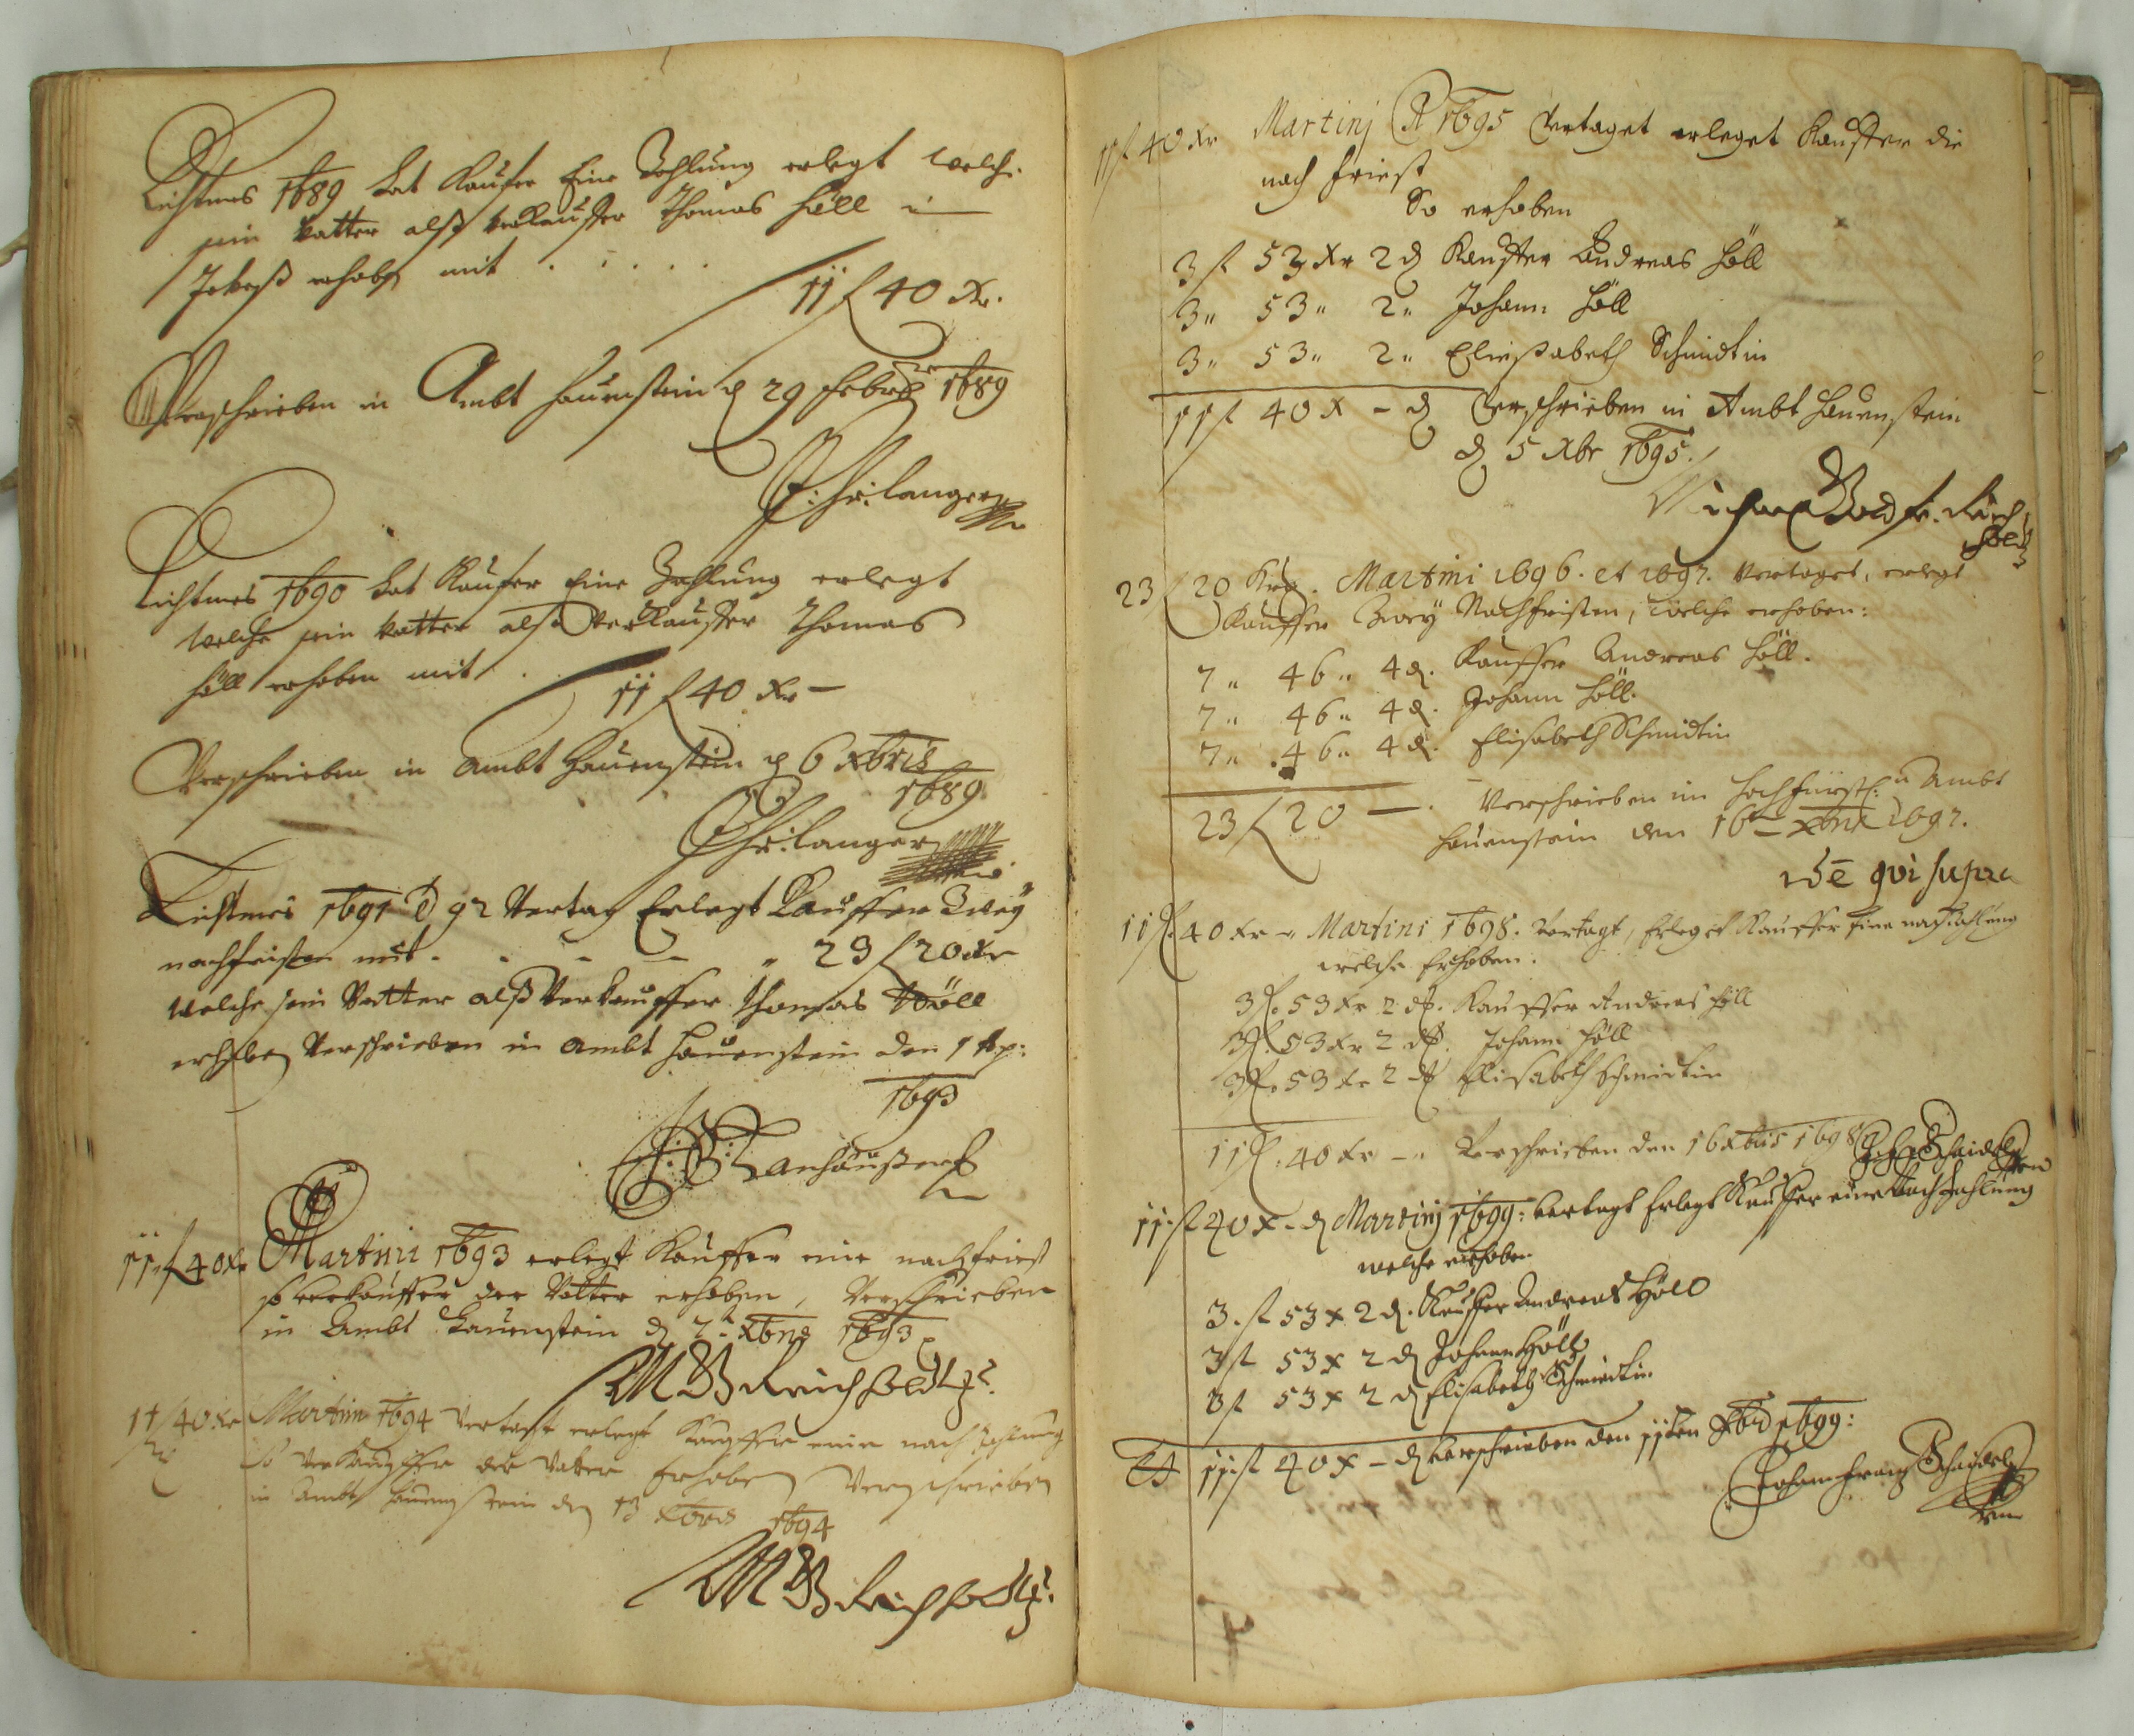 Lichtmes 1689 hat Kaufer Eine Zahlung erlegt welche
sein Vatter alß Verkauffer Thomas Höll
erhoben mit . . . .
11 f 40 Xr.
Verschrieben in Ambt Hauenstein d 29 Febr 1689
Langer
Lichtmes 1690 hat Kaufer Eine Zahlung erlegt
welche sein Vatter alß Verkauffer Thomas
Höll erhoben mit .
11 f 40 Xr –
Verschrieben in Ambt Hauenstein d 6 Xbris
1689
Langer
Lichtmes 1691 & 92 Vertag Erlegt Kauffer Zwey
nachfristen mit - - - - " 23 f 20 Xr
Welche sein Vatter alß Verkauffer Thomas Höll
erhoben Verschrieben in Ambt Hauenstein den 1
1693
11 f 40 Xr Martini 1693 erlegt Kauffer eine nachfrist
so verkauffer der Vatter erhoben, Verschrieben
in Ambt Hauenstein d 2 Xbris 1693
MW Reichholdt
11 f 40 Xr Martini 1694 Vertagt erlegt Kauffer eine nachzahlung
so Verkauffer der Vatter Erhoben Verschrieben
in Ambt Hauenstein den 13 Xbris 1694
MW Reichholdt
11 f 40 Xr Martinj A 1695 Vertaget erleget Kauffer die
nach friest
So erhoben
3 f 53 Xr 2 d Kauffer Andreas Höll
3 " 53 " 2 " Johann Höll
3 " 53 " 2 " Eliesabeth Schmidtin
11 f 40 X – d Verschrieben in Ambt Hauenstein
d 5 Xbr 1695.
23 f 20 Xr. Martini 1696. et 1697. Vertaget, erlegt
Kauffer Zwey Nachfristen, welche erhoben:
7 " 46 " 4 d. Kauffer Andreas Höll.
7 " 46 " 4 d. Johann Höll.
7 " 46 " 4 d. Elisabeth Schmidtin
23 f 20 – . Verschrieben im Hochfürstl: Ambt
Hauenstein den 16 Xbris 1697.
Idē qui supra
11 f. 40 Xr – Martini 1698. Vertagt, Erleget Kauffer Eine nachzahlung
welche Erhoben.
3 f. 53 Xr 2 d. Kauffer Andreas Höll
3 f. 53 Xr 2 d. Johann Höll
3 f. 53 Xr 2 d Elisabeth Schmidtin
11 f. 40 Xr – " Verschrieben den 16 Xbris 1698
11. f 40 X – d Martinj 1699: Vertagt Erlegt Kauffer eine Nachzahlung
welche erhoben
3. f 53 X 2 d. Kauffer Andreas Höll
3 f 53 X 2 d Johann Höll
3 f 53 X 2 d Elisabeth Schmidtin.
11 f 40 X – d Verschrieben den 11ten Xbris 1699:
Johann Frantz